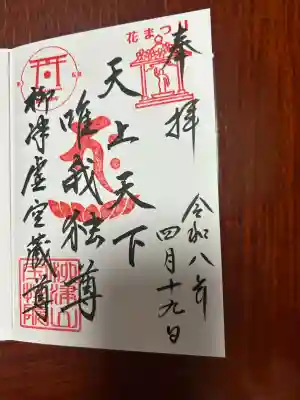 花まつり
奉拝
天上天下
唯我独尊
柳津虚空蔵尊
令和八年
四月十九日